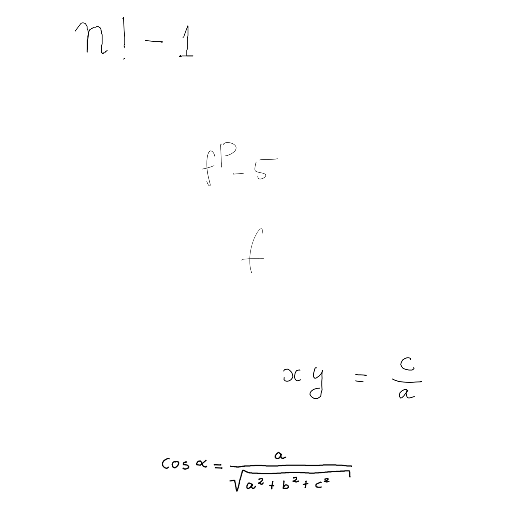 n! - 1
f^P - 5
f
xy = c/a
cos α = a/√(a² + b² + c²)